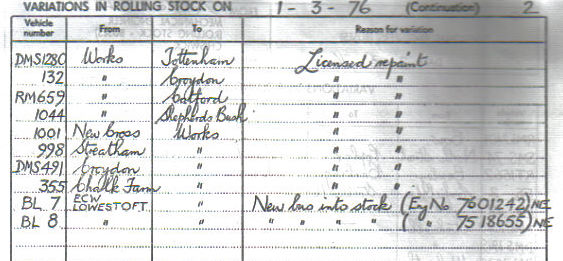 VARIATIONS IN ROLLING STOCK ON 1 - 3 - 76 (Continuation) 2
Vehicle number From To Reason for variation
DMS1280 Works Tottenham Licensed repaint
132 " Croydon " "
RM659 " Catford " "
1044 " Shepherds Bush " "
1001 New Cross Works " "
998 Streatham " " "
DMS491 Croydon " " "
355 Chalk Farm " " "
BL 7 ECW LOWESTOFT " New bus into stock (Eng No 7601242) NE
BL 8 " " " " " " ( " 7518655) NE